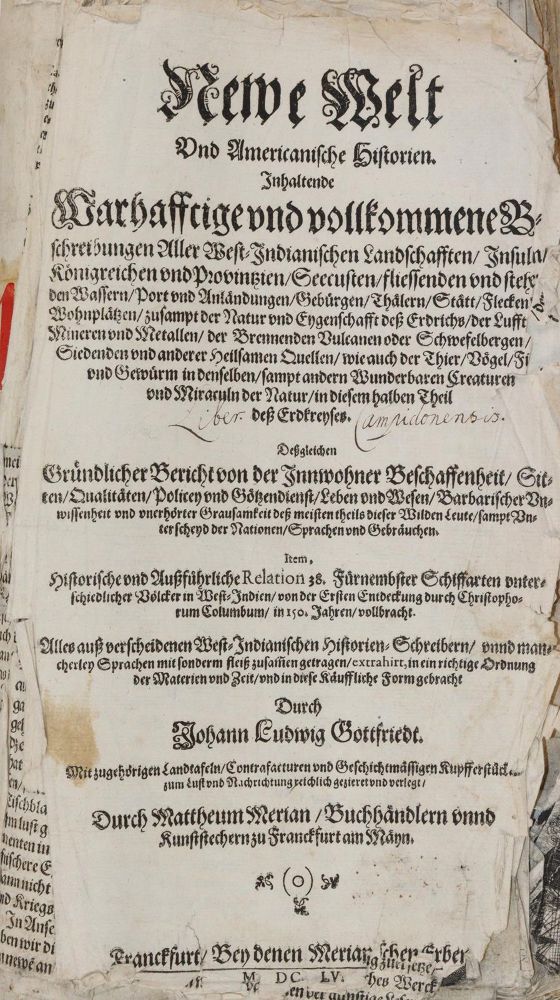 Newe Welt
Vnd Americanische Historien.
Inhaltende
Warhafftige vnd vollkommene B-
schreibungen Aller West-Indianischen Landschafften/ Insuln/
Königreichen vnd Provintzien/ Seecusten/ fliessenden vnd steh-
den Wassern/ Port vnd Anländungen/ Gebürgen/ Thälern/ Stätt/ Flecken
Wohnplätzen/ zusampt der Natur vnd Eygenschafft deß Erdrichs/ der Lufft
Mineren vnd Metallen/ der Brennenden Vulcanen oder Schwefelbergen/
Siedenden vnd anderer Heilsamen Quellen/ wie auch der Thier/ Vögel/ Fi
vnd Gewürm in denselben/ sampt andern Wunderbaren Creaturen
vnd Miraculn der Natur/ in diesem halben Theil
Liber. deß Erdkreyses. Campidonensis.
Deßgleichen
Gründlicher Bericht von der Innwohner Beschaffenheit/ Sit-
ten/ Qualitäten/ Policey vnd Götzendienst/ Leben vnd Wesen/ Barbarischer Vn-
wissenheit vnd vnerhörter Grausamkeit deß meisten theils dieser Wilden Leute/ sampt Vn-
terscheyd der Nationen/ Sprachen vnd Gebräuchen.
Item,
Historische vnd Außführliche Relation 38. Fürnembster Schiffarten vnter-
schiedlicher Völcker in West-Indien/ von der Ersten Entdeckung durch Christopho-
rum Columbum/ in 150. Jahren/ vollbracht.
Alles auß verscheidenen West-Indianischen Historien-Schreibern/ vnnd man-
cherley Sprachen mit sonderm fleiß zusam̄en getragen/ extrahirt, in ein richtige Ordnung
der Materien vnd Zeit/ vnd in diese Käuffliche Form gebracht
Durch
Johann Ludwig Gottfriedt.
Mit zugehörigen Landtafeln/ Contrafacturen vnd Geschichtmässigen Kupfferstück
zum Lust vnd Nachrichtung reichlich gezieret vnd verlegt/
Durch Mattheum Merian/ Buchhändlern vnnd
Kunststechern zu Franckfurt am Mäyn.
(O)
Franckfurt/ Bey denen Merianischen Erben
M DC LV.
hes Werck